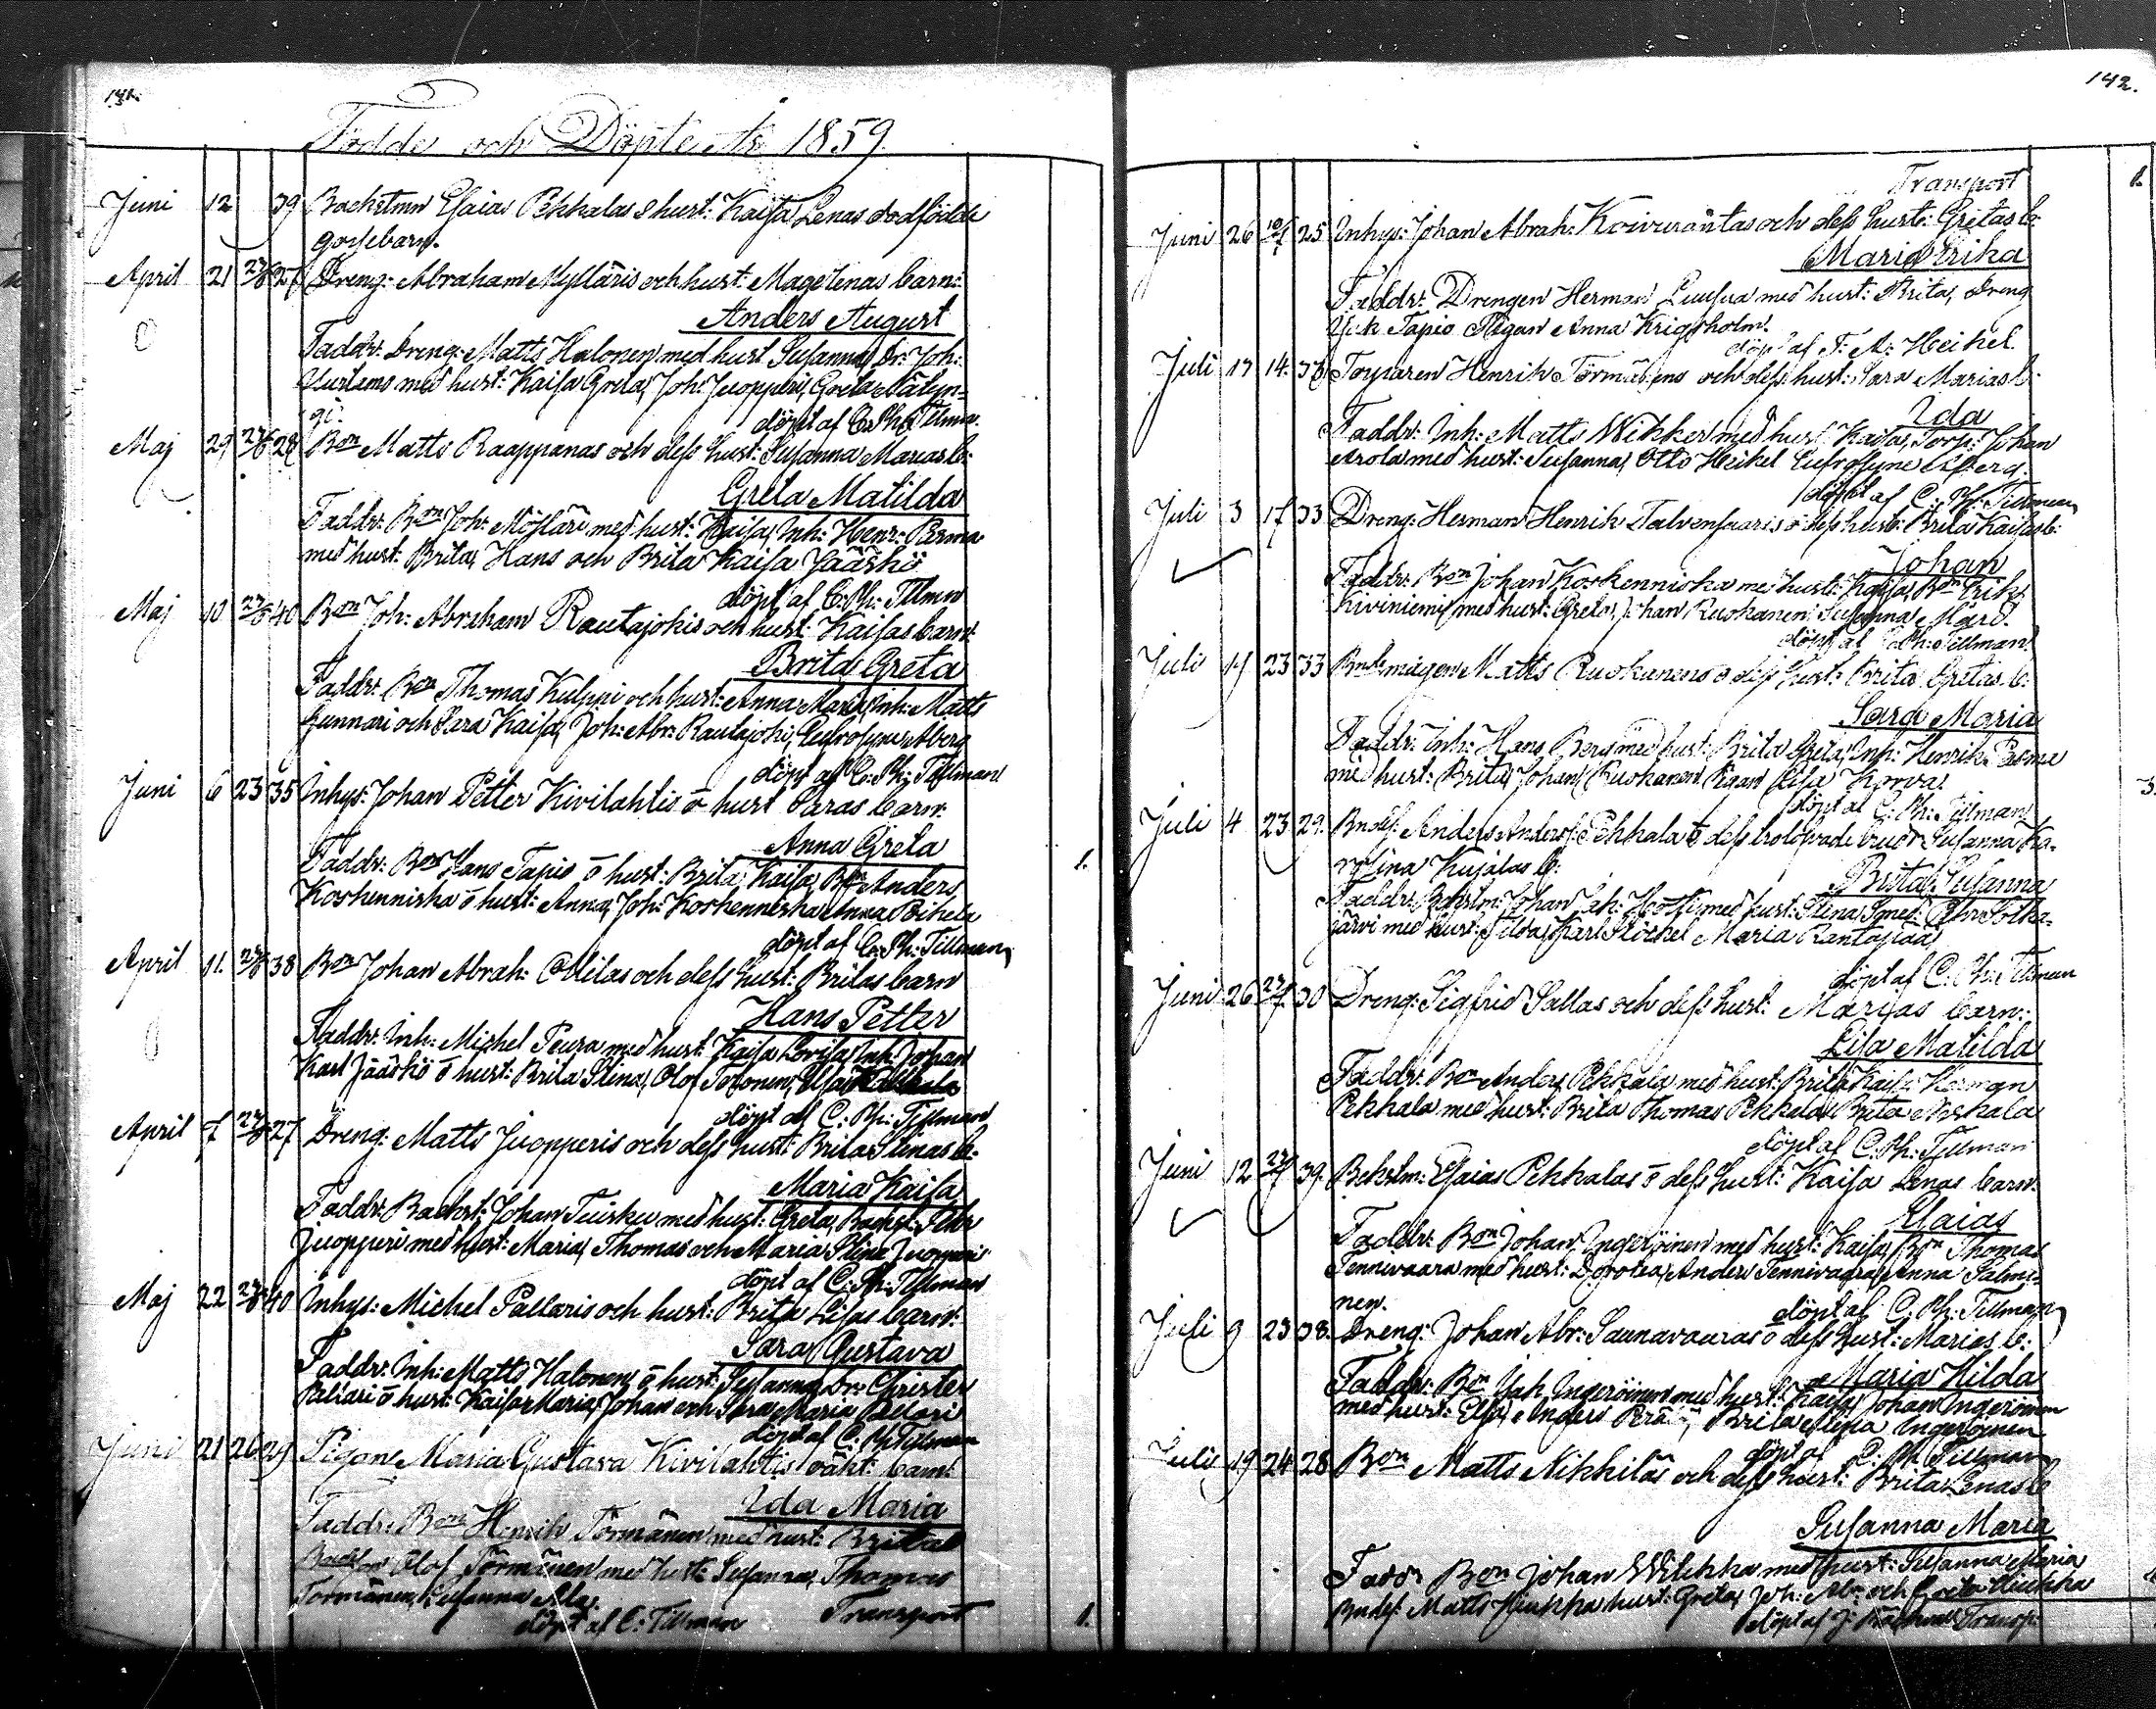 141.
Födde och Döpte År 1859
Juni 12 39 Backstmn Esaias Pekkalas o hust: Kaisa Lenas dödfödde
gossebarn.
April 21 27/6 27 Dreng: Abraham Myllaris och hust: Magdlenas barn:
Anders August
Faddr: Dreng: Matts Halonen med hust Susanna, Dr: Joh:
med hust: Kaisa Greta, Joh: Juopperi, Greta
döpt af C. Ph. Tillman
Maj 29 27/6 28 Bon Matts Raappanas och dess hust: Susanna Marias b:
Greta Matilda
Faddr: Bon Joh: med hust: Kaisa, Inh: Henr: Parma
med hust: Brita, Hans och Brita Kaisa Jääskö
döpt af C. Ph: Tillmn
Maj 10 27/6 40 Bon Joh: Abraham Rautajokis och hust: Kaisas barn:
Brita Greta
Faddr: Bon Thomas Kulppi och hust: Anna Maria, Inh: Matts
Gunnari och Sara Kaisa, Joh: Abr: Rautajoki, Eufrosyne Åberg
döpt af C: Ph: Tillman
Juni 6 23 35 Inhys: Johan Petter Kivilahtis o hust Saras barn:
Anna Greta
Faddr: Bon Hans Tapio o hust: Brita Kaisa, Bon Anders 1.
Koskenniska o hust: Anna, Joh: Koskenniska Anna
döpt af C: Ph: Tillman
April 11. 27/6 38 Bon Johan Abrah: Ollilas och dess hust: Britas barn
Hans Petter
Faddr: Inh: Michel Peura med hust: Kaisa Lovisa, Inh: Johan
Karl Jääskö o hust: Brita Stina, Olof
döpt af C: Ph: Tillman
April 7 27/6 27 Dreng: Matts Juopperis och dess hust: Brita Stinas b:
Maria Kaisa
Faddr: Backst: Johan Tuisku med hust: Greta, Backst: Pehr
Juopperi med hust: Maria, Thomas och Maria Stina Juopperi
döpt af C: Ph: Tillman
Maj 22 27/6 40 Inhys: Michel Pallaris och hust: Brita Lisas barn:
Sara Gustava
Faddr: Inh: Matts Halonen o hust: Susanna, Dr: Christer
Pallari o hust: Kaisa Maria, Johan och Sara Maria Pallari
döpt af C. Ph Tillman
Juni 21 26 29 Pigan Maria Gustava Kivilahtis oäkt: barn:
Ida Maria
Faddr: Bon Henrik Törmänen med hust: Brita
Olof Törmänen med hust: Susanna, Thomas
Törmänen, Susanna
döpt af C: Tillman Transport 1.
142.
Transport 1.
Juni 26 10/7 25 Inhys: Johan Abrah: Koivurantas och dess hust: Gretas b:
Maria Erika
Faddr: Drengen Herman Luusua med hust: Brita, Dreng
Tapio Pigan Anna Krigsholm.
döpt af F. A: Heikel.
Juli 14. Torparen Henrik Törmänens och dess hust: Sara Marias b.
Ida
Faddr: Inh: Matts Wikker med hust: Kaisa, Torp: Johan
Arola med hust: Susanna, Otto Heikel Eufrosyne Åberg.
döpt af C: Ph: Tillman
Juli 3 17 33 Dreng: Herman Henrik Talvensaaris o dess hust: Brita Kaisas b:
Johan
Faddr: Bon Johan Koskenniska med hust: Kaisa, Bon Erik
Kiviniemi med hust: Greta, Johan Ruokanen Susanna Mård.
döpt af C: Ph: Tillman
Juli 14 23 33 Bndemågen Matts Ruokanens o dess hust: Brita Gretas b:
Sara Maria
Faddr: Inh: Hans Berg med hust: Brita Greta, Inh: Henrik Parma
med hust: Brita, Johan Ruokanen Pigan Lisa Korva.
döpt af C: Ph: Tillman 3.
Juli 4 23 29. Bndes: Anders Anders: Pekkala o dess trolofvade brud Susanna Ka-
rolina Kujalas b:
Brita Susanna
Faddr: Backstm: Johan med hust: Stina, Smed: Pehr
järvi med hust: Tilda, Karl Stockel Maria Rantapää
döpt af C: Ph: Tillman
Juni 26 27/7 30 Dreng: Sigfrid Sallas och dess hust: Marias barn:
Lisa Matilda
Faddr: Bon Anders Pekkala med hust: Brita Kaisa Herman
Pekkala med hust: Brita Thomas Pekkala, Brita Niskala
döpt af C. Ph: Tillman
Juni 12 27/7 39. Bckstm: Esaias Pekkalas o dess hust: Kaisa Lenas barn:
Esaias
Faddr: Bon Johan Ingeröinen med hust: Kaisa, Bon Thomas
Tennivaara med hust: Dorotea, Anders Tennivaara, Anna Salmi-
nen.
döpt af C. Ph: Tillman
Juli 9 23 38. Dreng: Johan Abr: Saunavaaras o dess hust: Marias b:
Maria Hilda
Faddr: Bon Isak Ingeröinen med hust: Kaisa, Johan Ingeröinen
med hust: Elsa, Anders Brita Ingeröinen
döpt af C: Ph Tillman
Juli 19 24 28 Bon Matts Nikkiläs och dess hust: Brita Lenas b
Susanna Maria
Faddr Bon Johan med hust: Susanna Maria
Bndes: Matts Hiukka hust: Greta, Joh: Abr: och Greta Hiukka
döpt af J: Transp: